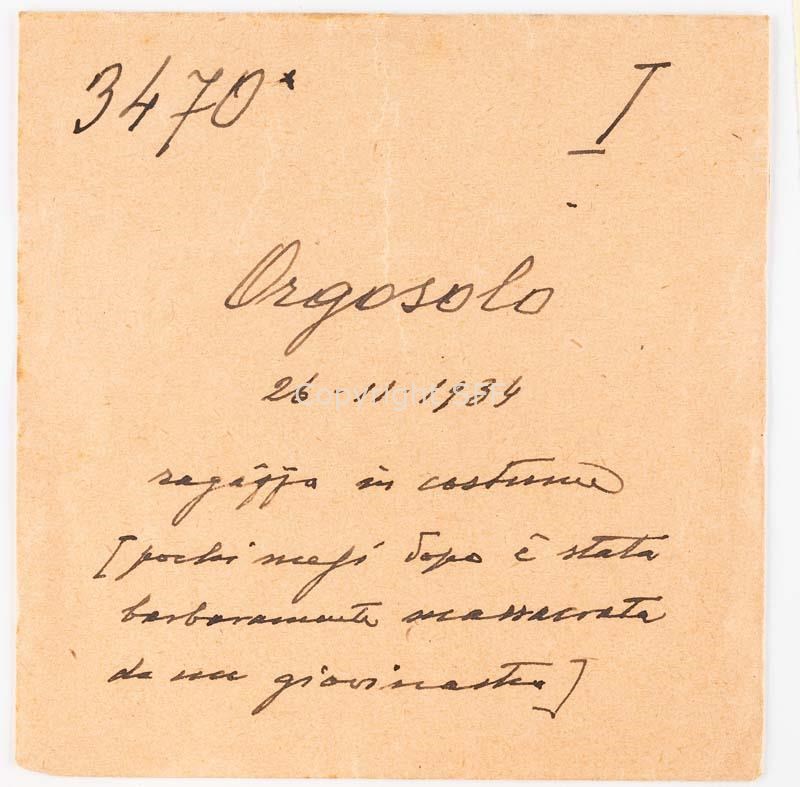 3470* I
Orgosolo
26-11-1934
ragazza in costume
[pochi mesi dopo è stata
barbaramente massacrata
da un giovinastro]